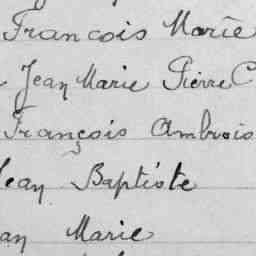 Francois Marie
Jean Marie Pierre
François Ambrois
Jean Baptiste
an Marie